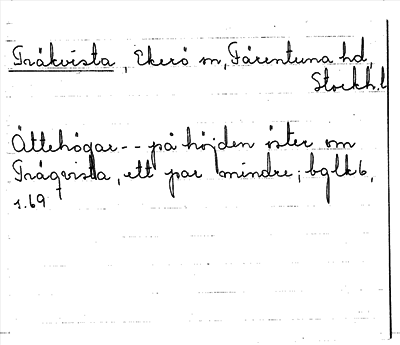 Träkvista, Ekerö sn, Färentuna hd,
Stockh.l
Ättehögar -- på höjden öster om
Träqvista, ett par mindre; bglk 6,
s. 69